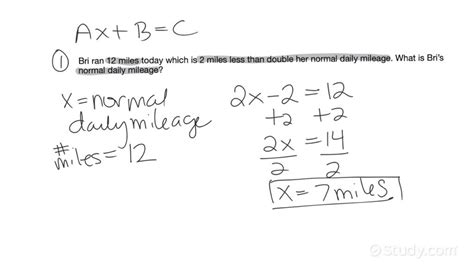 Ax + B = C
1 Bri ran 12 miles today which is 2 miles less than double her normal daily mileage. What is Bri's
normal daily mileage?
x = normal
daily mileage
# miles = 12
2x - 2 = 12
+2 +2
2x = 14
2 2
x = 7 miles
Study.com